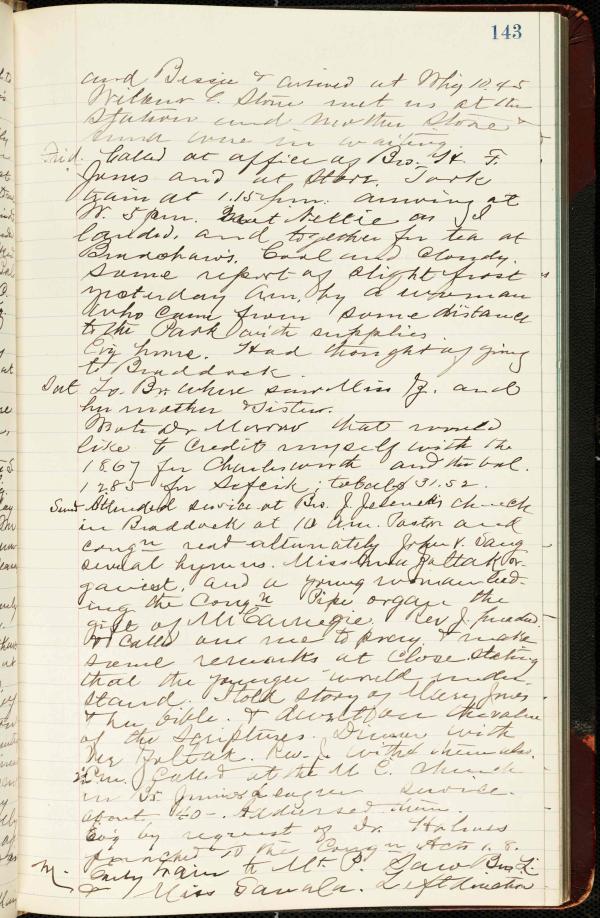 143
and Bessie & arrived at Whg 10.45
Wilbur C. Stone met us at the
station and Mother Stone &
were in waiting
Frid. Called at office of Bro. H. F.
Jones and at store. Took
train at 1.15 p.m. arriving at
W. 5 p.m. Met Nellie as I
landed, and together for tea at
Bradshaw's. Cool and cloudy.
Some report of slight frost
yesterday a.m. by a woman
who came from some distance
to the Park with supplies
Evg home. Had thought of going
to Braddock.
Sat To Br. where saw Miss and
her mother & sister.
Wrote Dr. Morrow that would
like to credit myself with the
18.67 for Charlesworth and the bal.
12.85 for ; total $31.52.
Sun Attended service at Bro. J. church
in Braddock at 10 a.m. Pastor and
congn read alternately John V. Sang
several hymns. Miss or-
ganist, and a young woman lead-
ing the Congn Pipe organ the
gift of Mr Carnegie. Rev J. preached
& called on me to pray, & make
some remarks at close stating
that the younger would under-
stand. I told story of Mary Jones
& her bible. & dwelt on the value
of the Scriptures. Dinner with
Rev. J. with them also.
2 p.m. Called at the M. E. Church
in Br. Junior League service.
about 40. Addressed them.
Evg by request of Dr. Holmes
preached to the Congn Acts 1.8.
M. Early train to Mt. P. Saw
& Miss . Left direction